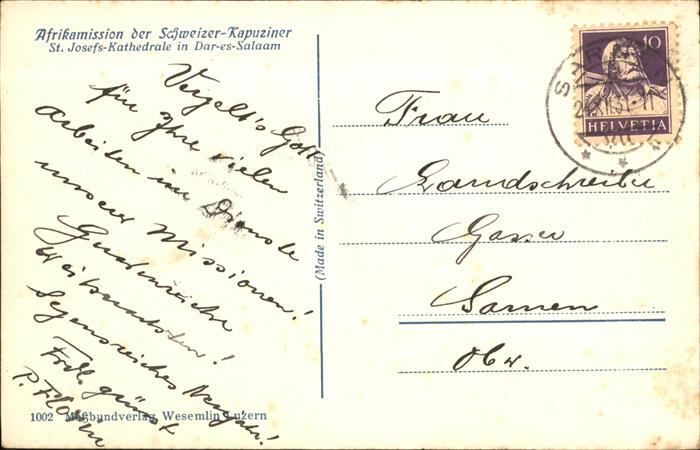 Afrikamission der Schweizer-Kapuziner
St. Josefs-Kathedrale in Dar-es-Salaam
Vergelt's Gott
für Ihre vielen
Arbeiten im Dienste
unserer Missionen!
Gnadenreiche
Weihnachten!
Segensreiches Neujahr!
Frdl. grüsst
P.
1002 Meßbundverlag Wesemlin Luzern
(Made in Switzerland)
10
HELVETIA
Frau
Landschreiber
Gasser
Sarnen
Obw.